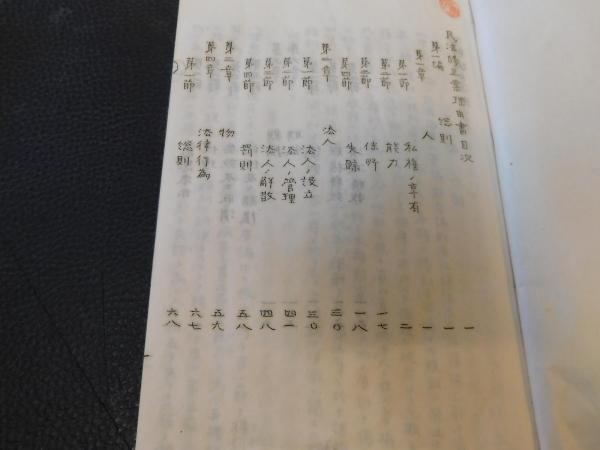 民法修正案理由書目次
第一編 総則 一
第一章 人 一
第一節 私権ノ享有 一
第二節 能力 二
第三節 住所 一七
第四節 失踪 一八
第二章 法人 三〇
第一節 法人ノ設立 三〇
第二節 法人ノ管理 四一
第三節 法人ノ解散 四八
第四節 罰則 五八
第三章 物 五九
第四章 法律行為 六七
第一節 総則 六八